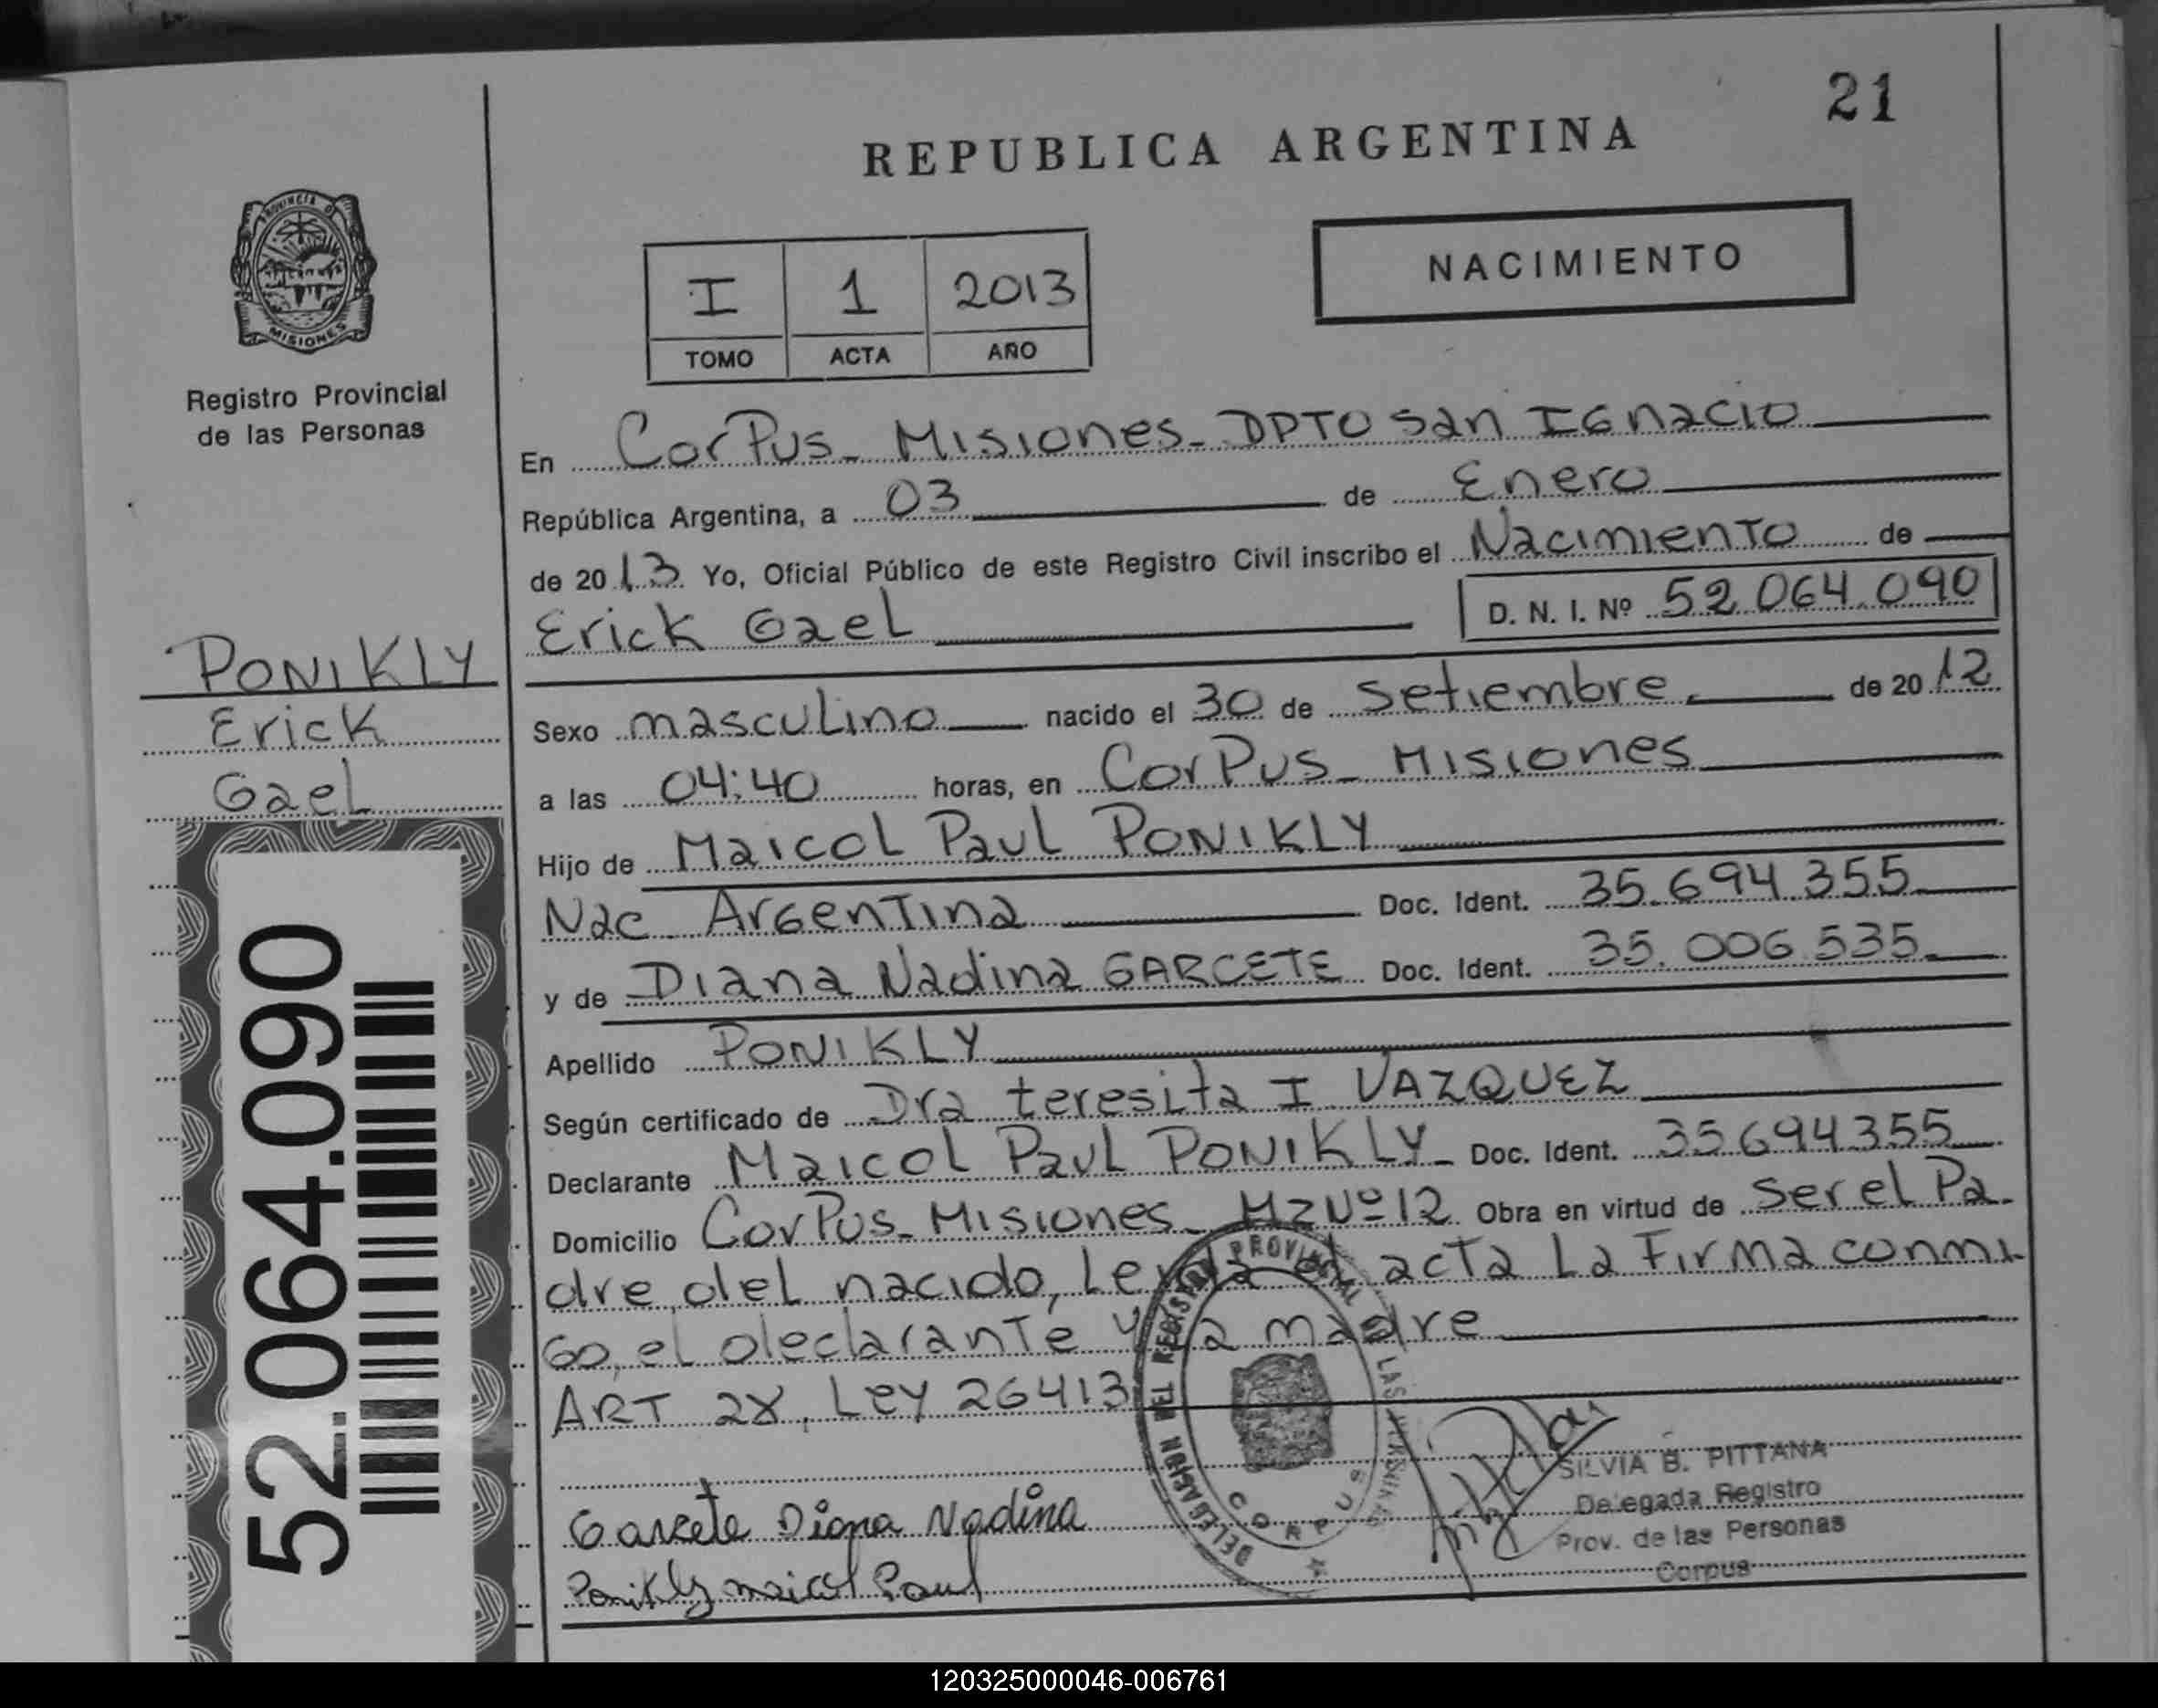 21
REPUBLICA ARGENTINA
PROVINCIA DE
MISIONES
Registro Provincial
de las Personas
I 1 2013
TOMO ACTA AÑO
NACIMIENTO
En CorPus_ Misiones_ DPTO San IGnacio
República Argentina, a 03 de Enero
de 2013 Yo, Oficial Público de este Registro Civil inscribo el Nacimiento de
Erick Gael D. N. I. Nº 52.064.090
PONIKLY
Erick
Gael
Sexo masculino nacido el 30 de Setiembre de 2012
a las 04:40 horas, en CorPus_ Misiones
Hijo de Maicol Paul PONIKLY
Nac Argentina Doc. Ident. 35.694.355
y de Diana Nadina GARCETE Doc. Ident. 35.006.535
Apellido PONIKLY
Según certificado de Dra teresita I VAZQUEZ
Declarante Maicol Paul PONIKLY Doc. Ident. 35694355
Domicilio CorPus_ Misiones_ Mz Nº 12 Obra en virtud de Ser el Pa
dre del nacido, Leida el acta La Firma conmi
Go, el declarante y La madre
ART 28, Ley 26413
52.064.090
DELEGACION DEL REGISTRO PROVINCIAL DE LAS PERSONAS
CORPUS
Garcete Diana Nadina
Ponikly maicol Paul
SILVIA B. PITTANA
Delegada Registro
Prov. de las Personas
Corpus
120325000046-006761